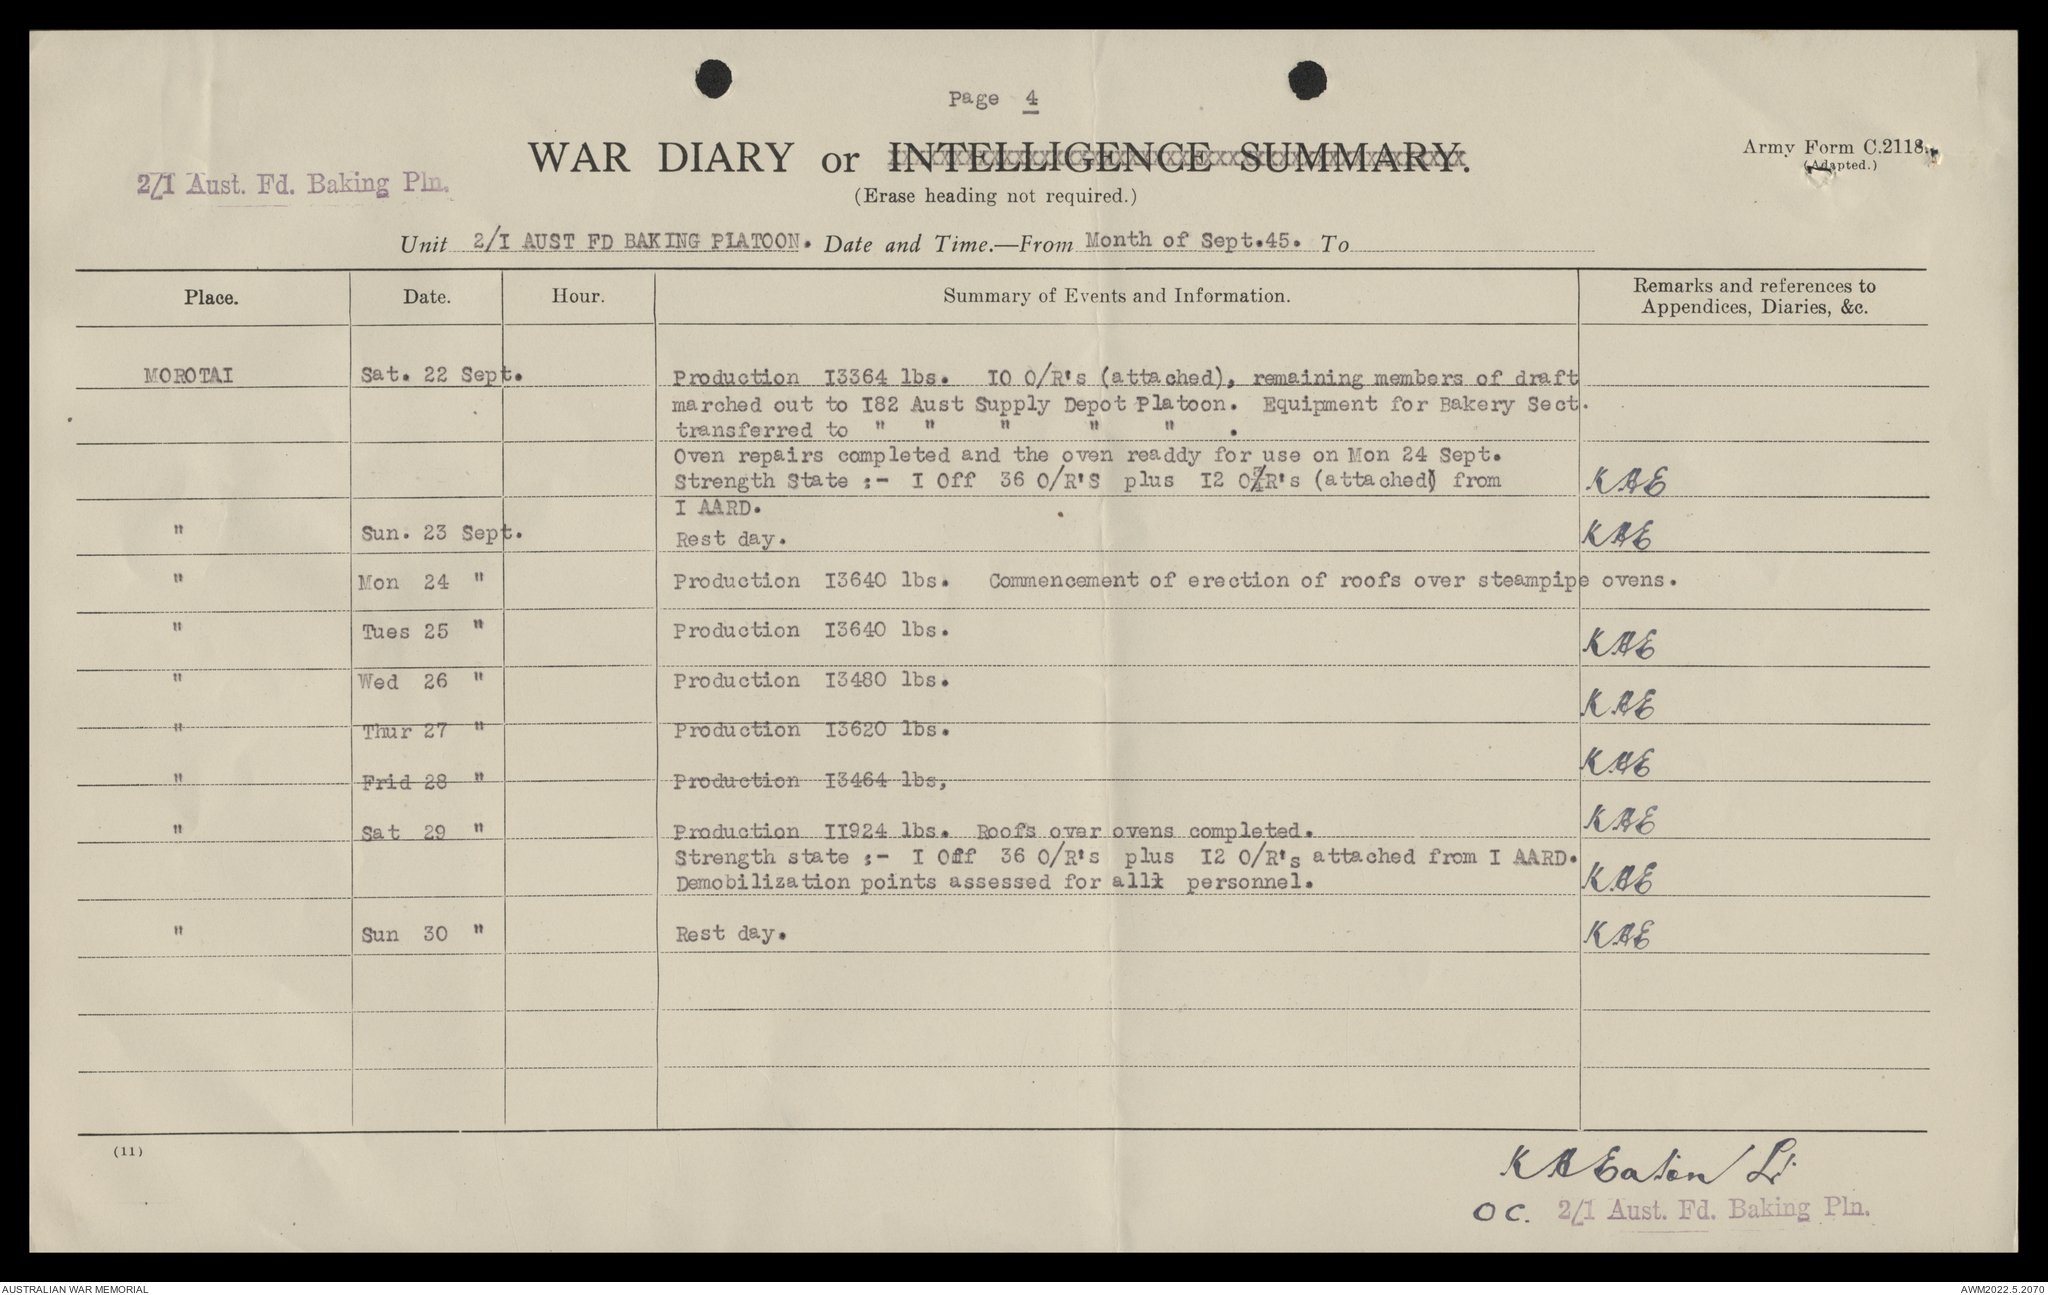 Page 4
WAR DIARY or INTELLIGENCE SUMMARY.
Army Form C.2118.
(Adapted.)
2/1 Aust. Fd. Baking Pln.
(Erase heading not required.)
Unit 2/I AUST FD BAKING PLATOON. Date and Time.—From Month of Sept.45. To
Place. Date. Hour. Summary of Events and Information. Remarks and references to Appendices, Diaries, &c.
MOROTAI Sat. 22 Sept. Production I3364 lbs. IO O/R's (attached), remaining members of draft
marched out to I82 Aust Supply Depot Platoon. Equipment for Bakery Sect.
transferred to " " " " " .
Oven repairs completed and the oven readdy for use on Mon 24 Sept.
Strength State :- I Off 36 O/R'S plus I2 O/R's (attached) from KAE
I AARD.
" Sun. 23 Sept. Rest day. KAE
" Mon 24 " Production I3640 lbs. Commencement of erection of roofs over steampipe ovens.
" Tues 25 " Production I3640 lbs. KAE
" Wed 26 " Production I3480 lbs. KAE
" Thur 27 " Production I3620 lbs. KAE
" Frid 28 " Production I3464 lbs, KAE
" Sat 29 " Production II924 lbs. Roofs over ovens completed.
Strength state :- I Off 36 O/R's plus I2 O/R's attached from I AARD.
Demobilization points assessed for all personnel. KAE
" Sun 30 " Rest day. KAE
(11)
KA Eaton Lt
OC. 2/1 Aust. Fd. Baking Pln.
AUSTRALIAN WAR MEMORIAL
AWM2022.5.2070